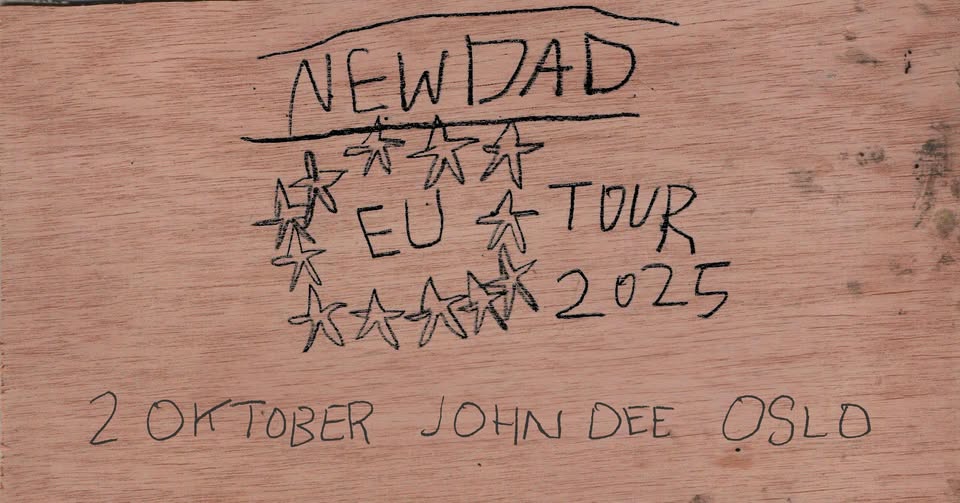 NEWDAD
EU TOUR
2025
2 OKTOBER JOHN DEE OSLO